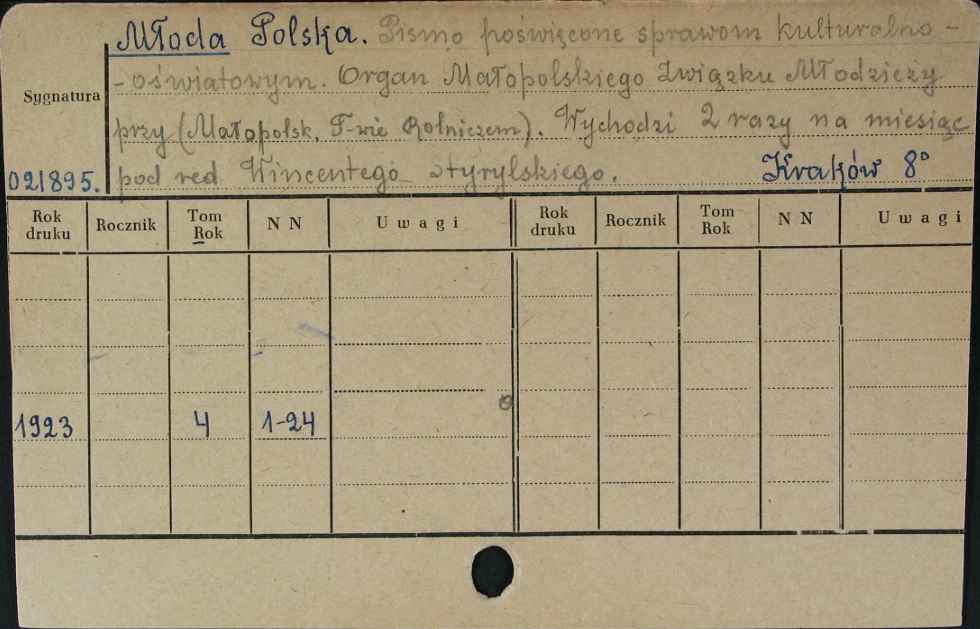 Młoda Polska. Pismo poświęcone sprawom kulturalno-
-oświatowym. Organ Małopolskiego Związku Młodzieży
Sygnatura
przy (Małopolsk. T-wie Rolniczem). Wychodzi 2 razy na miesiąc
021895. pod red Wincentego Styrylskiego. Kraków 8°
Rok druku Rocznik Tom Rok N N Uwagi Rok druku Rocznik Tom Rok N N Uwagi
1923 4 1-24